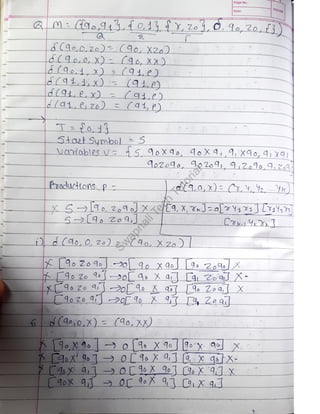 Q. M = ({q0, q1}, {0, 1}, {x, z0}, δ, q0, z0, {})
Q Σ Γ
δ(q0, 0, z0) = (q0, xz0)
δ(q0, 0, x) = (q0, xx)
δ(q0, 1, x) = (q1, e)
δ(q1, 1, x) = (q1, e)
δ(q1, e, x) = (q1, e)
δ(q1, e, z0) = (q1, e)
→ T = {0, 1}
Start Symbol = S
Variables V = {S, q0xq0, q0xq1, q1xq0, q1xq1
q0z0q0, q0z0q1, q1z0q0, q1z0q1
Productions, P =
x S → [q0 z0 q0] x
S → [q0 z0 q1]
i) δ(q0, 0, z0) = (q0, xz0)
x [q0 z0 q0] → 0 [q0 x q0] [q0 z0 q0] x
x [q0 z0 q0] → 0 [q0 x q1] [q1 z0 q0] x
x [q0 z0 q1] → 0 [q0 x q0] [q0 z0 q1] x
[q0 z0 q1] → 0 [q0 x q1] [q1 z0 q1]
ii) δ(q0, 0, x) = (q0, xx)
x [q0 x q0] → 0 [q0 x q0] [q0 x q0] x
x [q0 x q0] → 0 [q0 x q1] [q1 x q0] x
x [q0 x q1] → 0 [q0 x q0] [q0 x q1] x
[q0 x q1] → 0 [q0 x q1] [q1 x q1]